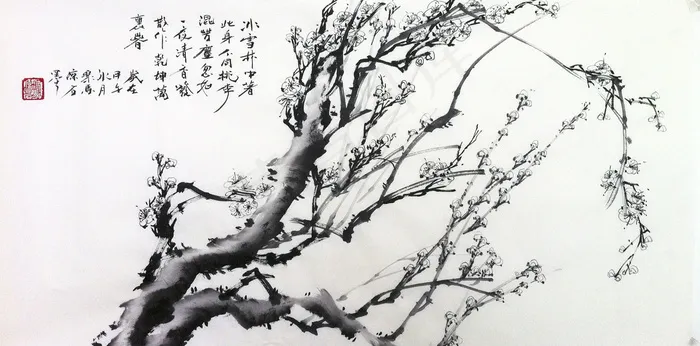 冰雪林中著
此身不同桃李
混芳塵忽然
一夜清香發
散作乾坤萬
裏春
歲在
甲午